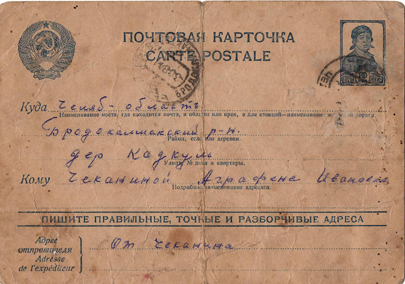 ПОЧТОВАЯ КАРТОЧКА
CARTE POSTALE
Куда Челяб- область
Наименование места, где находится почта, и области или края, а для станций—наименование железной дороги
Бродокалмакский р-н.
Район, село или деревня.
дер Кадкуль
Улица, № дома и квартиры.
Кому Чеканиной Аграфене Ивановне
Подробн. наименование адресата.
ПИШИТЕ ПРАВИЛЬНЫЕ, ТОЧНЫЕ И РАЗБОРЧИВЫЕ АДРЕСА
Адрес
отправителя
Adresse de
l'expéditeur
От Чеканина